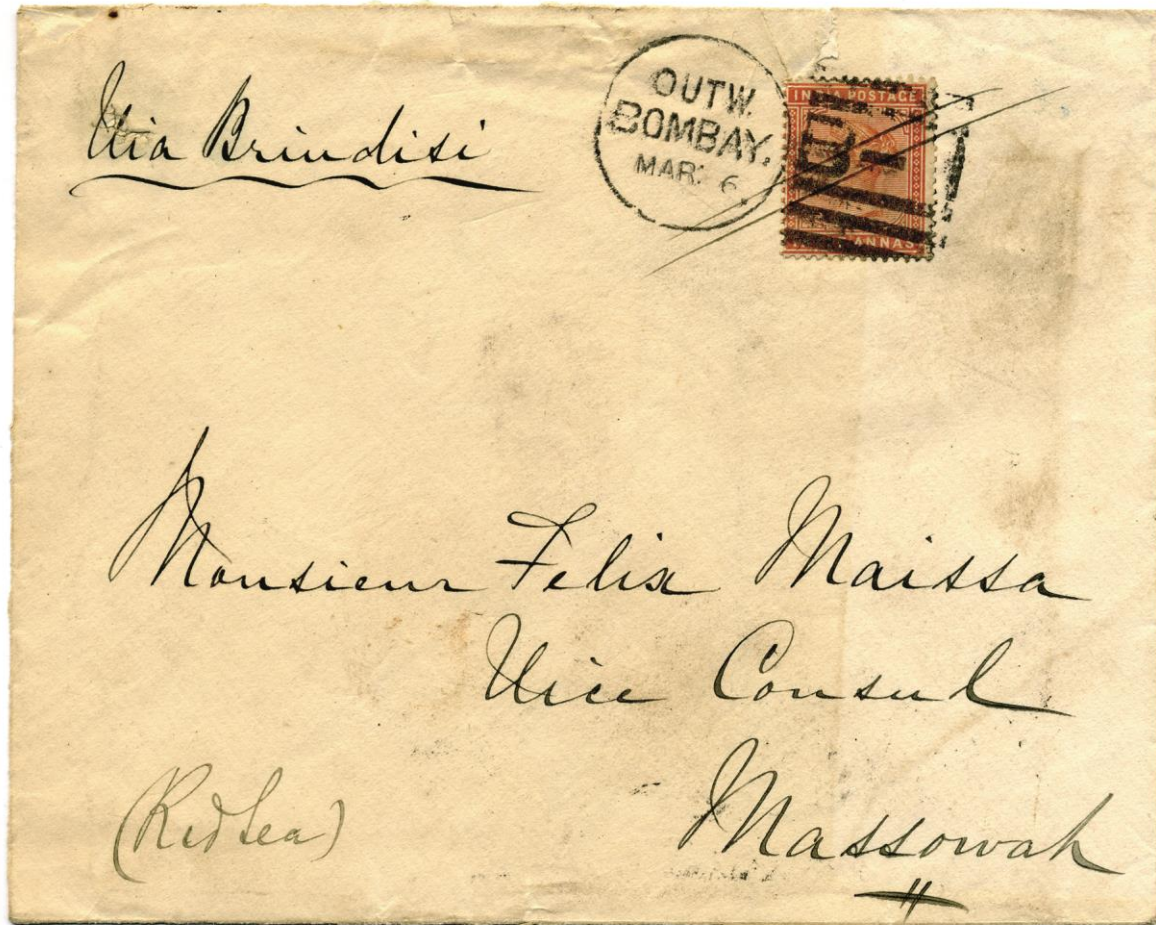 Via Brindisi
OUTW.
BOMBAY.
MAR: 6.
INDIA POSTAGE
B
1
ANNAS
Monsieur Felix Maissa
Vice Consul
Massowah
(Red Sea)